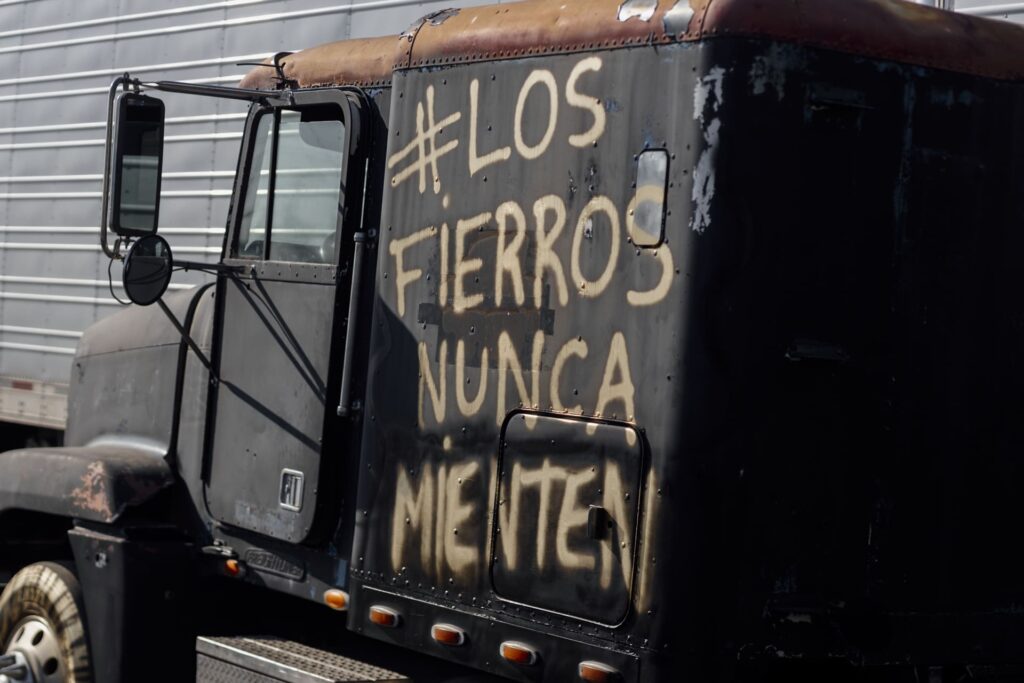 #LOS
FiERROS
NUNCA
MiENTEN